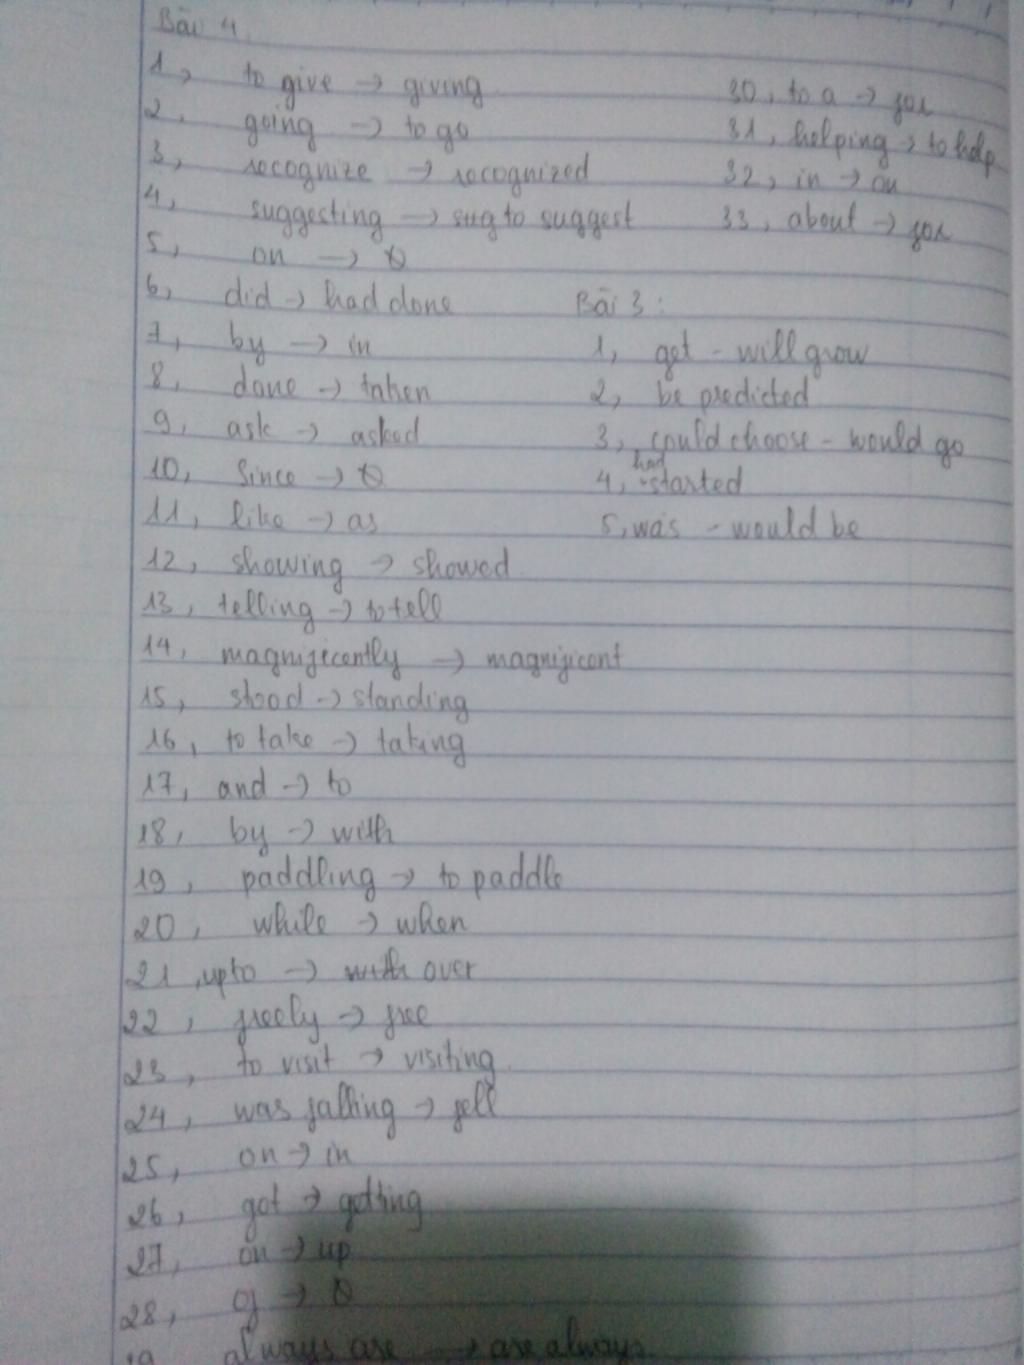 Bài 4
1, to give → giving
2, going → to go
3, recognize → recognized
4, suggesting → sug to suggest
5, on → Ø
6, did → had done
7, by → in
8, done → taken
9, ask → asked
10, Since → Ø
11, like → as
12, showing → showed
13, telling → to tell
14, magnificently → magnificent
15, stood → standing
16, to take → taking
17, and → to
18, by → with
19, paddling → to paddle
20, while → when
21, up to → with over
22, freely → free
23, to visit → visiting
24, was falling → fell
25, on → in
26, got → getting
27, on → up
28, of → Ø
29 always are → are always
30, to a → for
31, helping → to help
32, in → on
33, about → for
Bài 3:
1, get - will grow
2, be predicted
3, could choose - would go
4, had started
5, was - would be